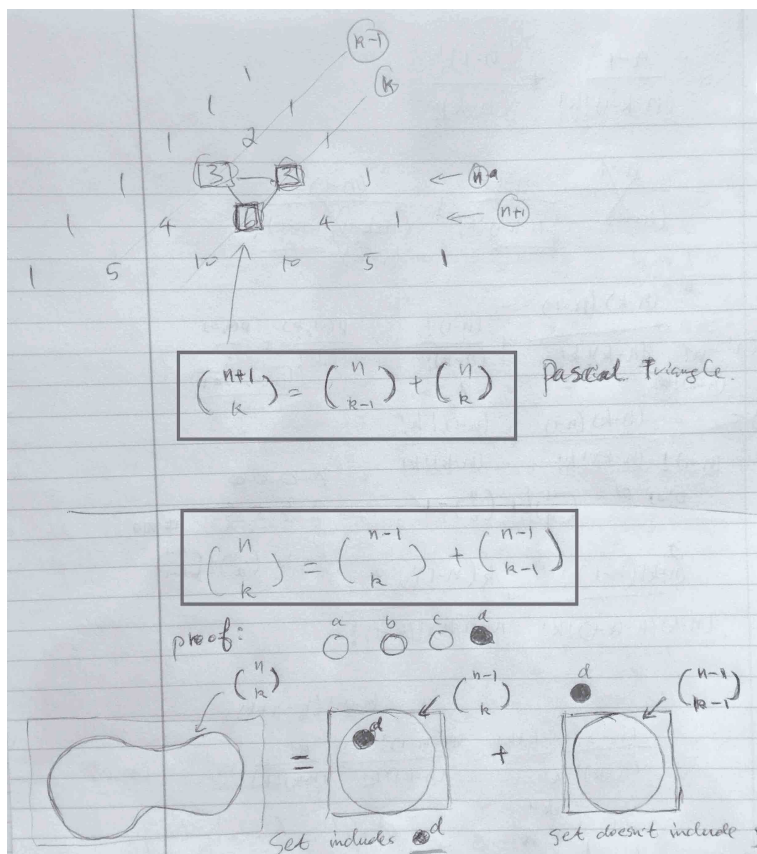 k-1
1
k
1 1
1 2 1
1 3 3 1 ← n
1 4 6 4 1 ← n+1
1 5 10 10 5 1
(n+1 k) = (n k-1) + (n k) Pascal Triangle.
(n k) = (n-1 k) + (n-1 k-1)
proof: a b c d
(n k) (n-1 k) d (n-1 k-1)
d
= +
Set includes d set doesn't include